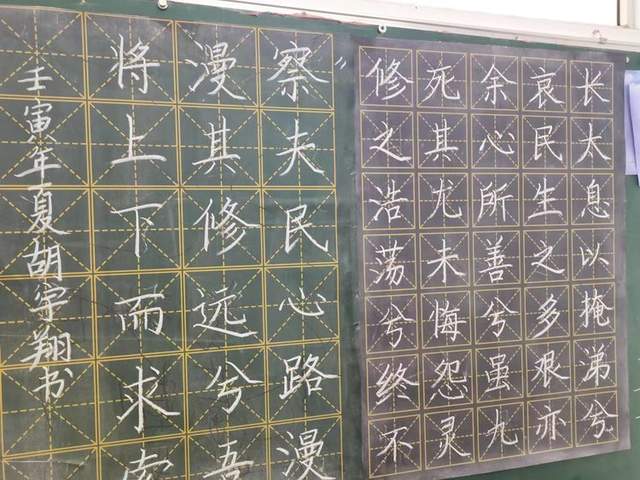 长太息以掩涕兮
哀民生之多艰亦
余心所善兮虽九
死其尤未悔怨灵
修之浩荡兮终不
察夫民心路漫
漫其修远兮吾
将上下而求索
壬寅年夏胡宇翔书